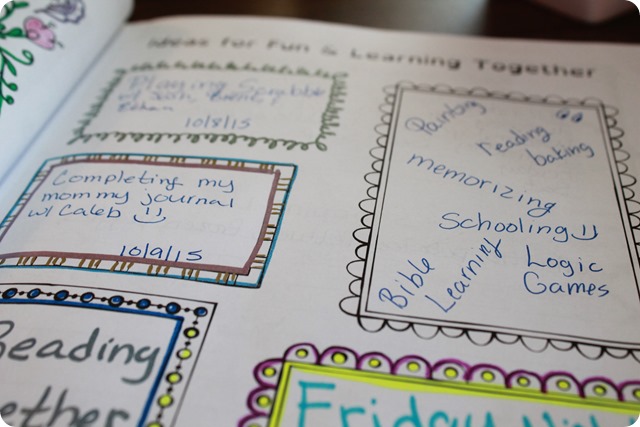 Ideas for Fun & Learning Together
Playing Scrabble
w/ Josh,
Ethan
10/8/15
Painting
reading
baking
memorizing
Schooling
Bible
Learning
Logic
Games
Completing my
mommy journal
w/ Caleb
10/9/15
Reading
Friday